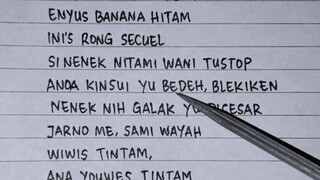 ENYUS BANANA HITAM
INI'S RONG SECUEL
SI NENEK NITAMI WANI TUSTOP
ANDA KINSUI YU BEDEH, BLEKIKEN
NENEK NIH GALAK YU DICESAR
JARNO ME, SAMI WAYAH
WIWIS TINTAM,
ANA YOUWES TINTAM